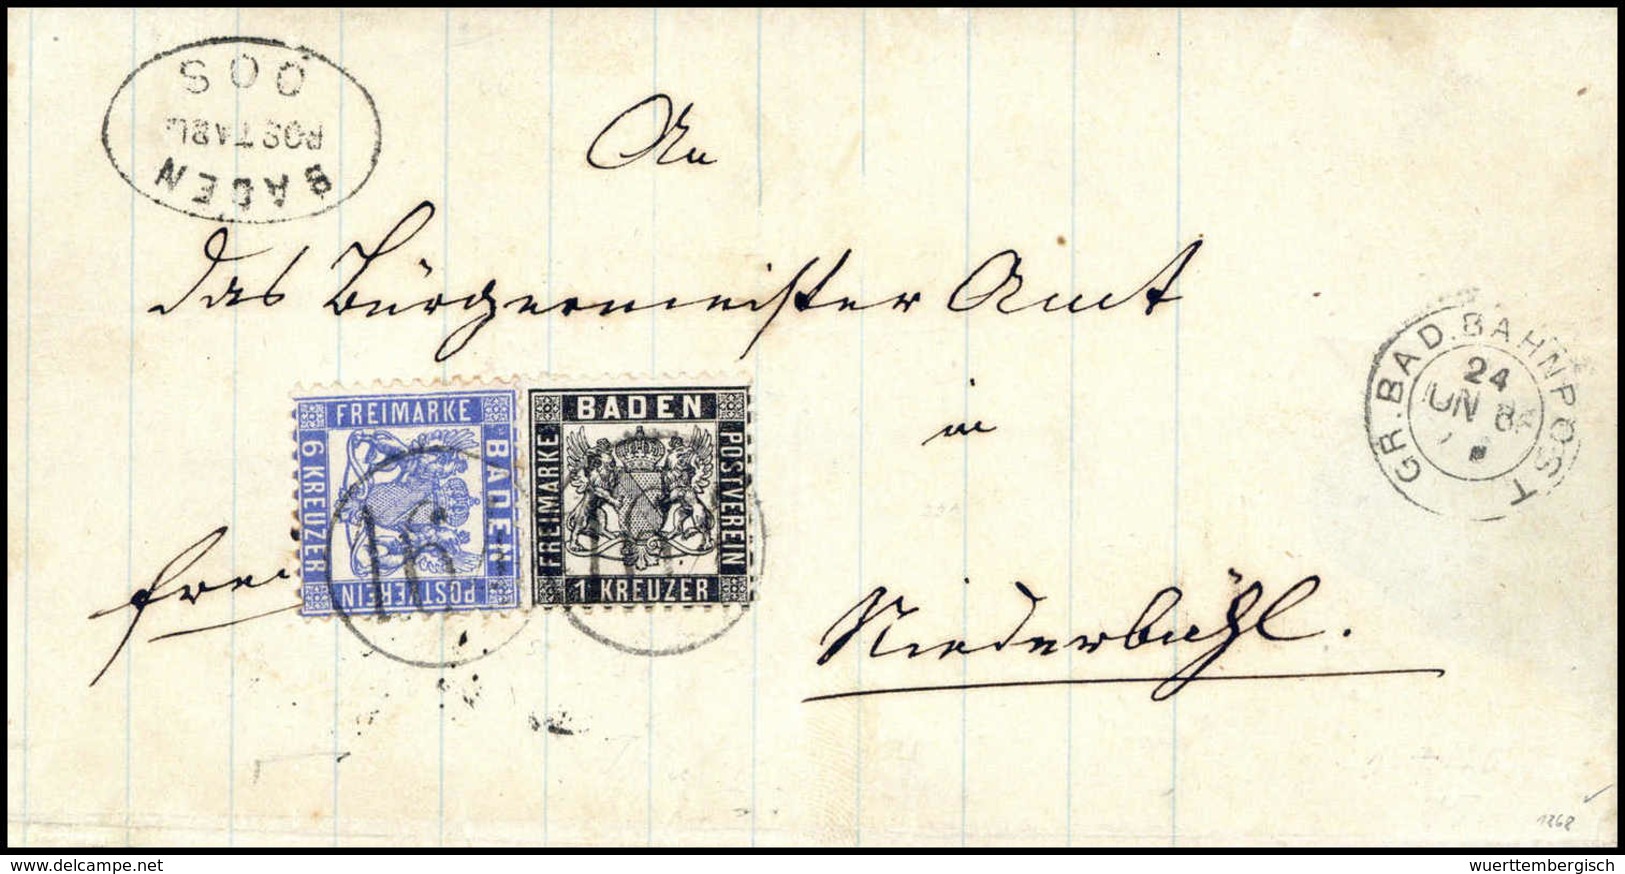 OOS
POSTABL
BADEN
An
das Bürgermeister Amt
in
Niederbühl.
frei
FREIMARKE
BADEN
POSTVEREIN
6 KREUZER
16
BADEN
FREIMARKE
POSTVEREIN
1 KREUZER
GR. BAD. BAHNPOST
24
JUN
1868
www.delcampe.net
wuerttembergisch